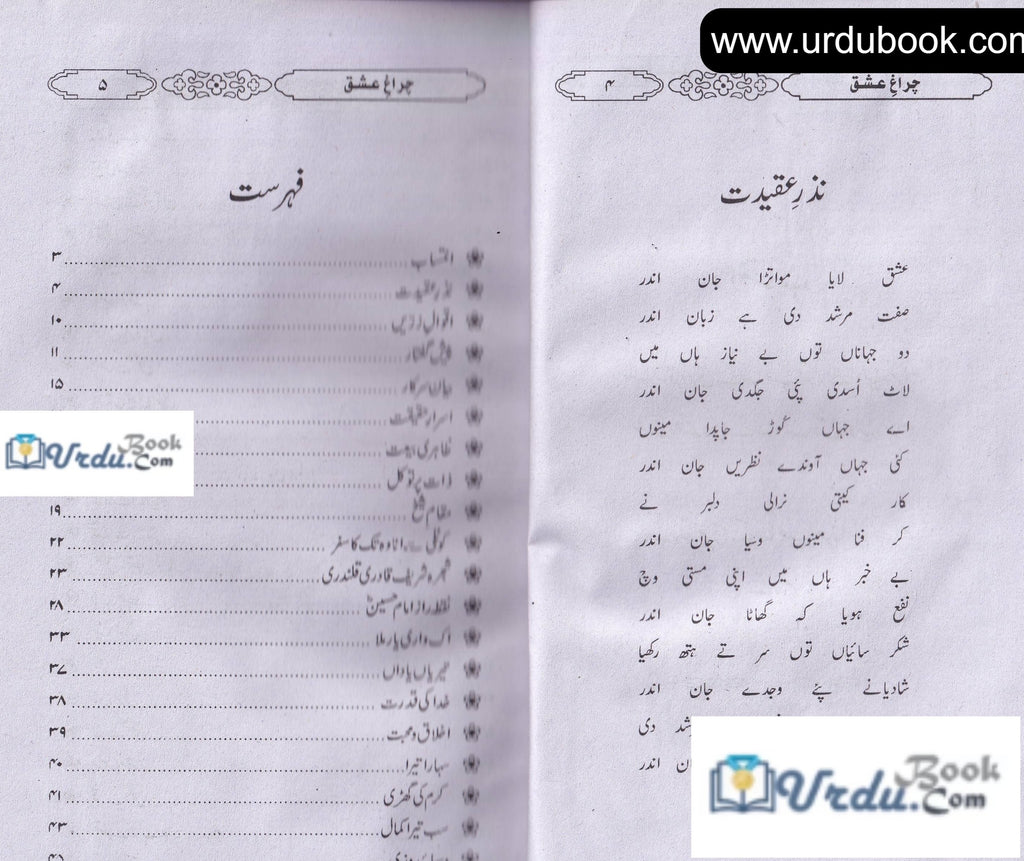 www.urdubook.com
چراغِ عشق
۴
نذرِ عقیدت
عشق لایا مواتڑا جان اندر
صفت مرشد دی ہے زبان اندر
دو جہاناں توں بے نیاز ہاں میں
لاٹ اُسدی پئی جگدی جان اندر
اے جہاں کُوڑ جاپدا مینوں
کئی جہاں آوندے نظریں جان اندر
کار کیتی نرالی دلبر نے
کر فنا مینوں وسیا جان اندر
بے خبر ہاں میں اپنی مستی وچ
نفع ہویا کہ گھاٹا جان اندر
شکر سائیاں توں سر تے ہتھ رکھیا
شادیانے پئے وجدے جان اندر
دی
اندر
Urdu Book .Com
چراغِ عشق
۵
فہرست
انتساب ۳
نذرِ عقیدت ۴
اقوالِ زرّیں ۱۰
پیش گفتار ۱۱
بیان سرکار ۱۵
اسرارِ حقیقت
ظاہری بیعت
ذات پر توکل
مقام شیخ ۱۹
کوٹلی سے اناوہ تک کا سفر ۲۲
شجرہ شریف قادری قلندری ۲۳
نقطہ راز امام حسینؓ ۲۸
اک واری یار ملا ۳۳
تیریاں یاداں ۳۷
خدا کی قدرت ۳۸
اخلاق و محبت ۳۹
سہارا تیرا ۴۰
کرم کی گھڑی ۴۱
سب تیرا کمال ۴۳
Urdu Book .Com